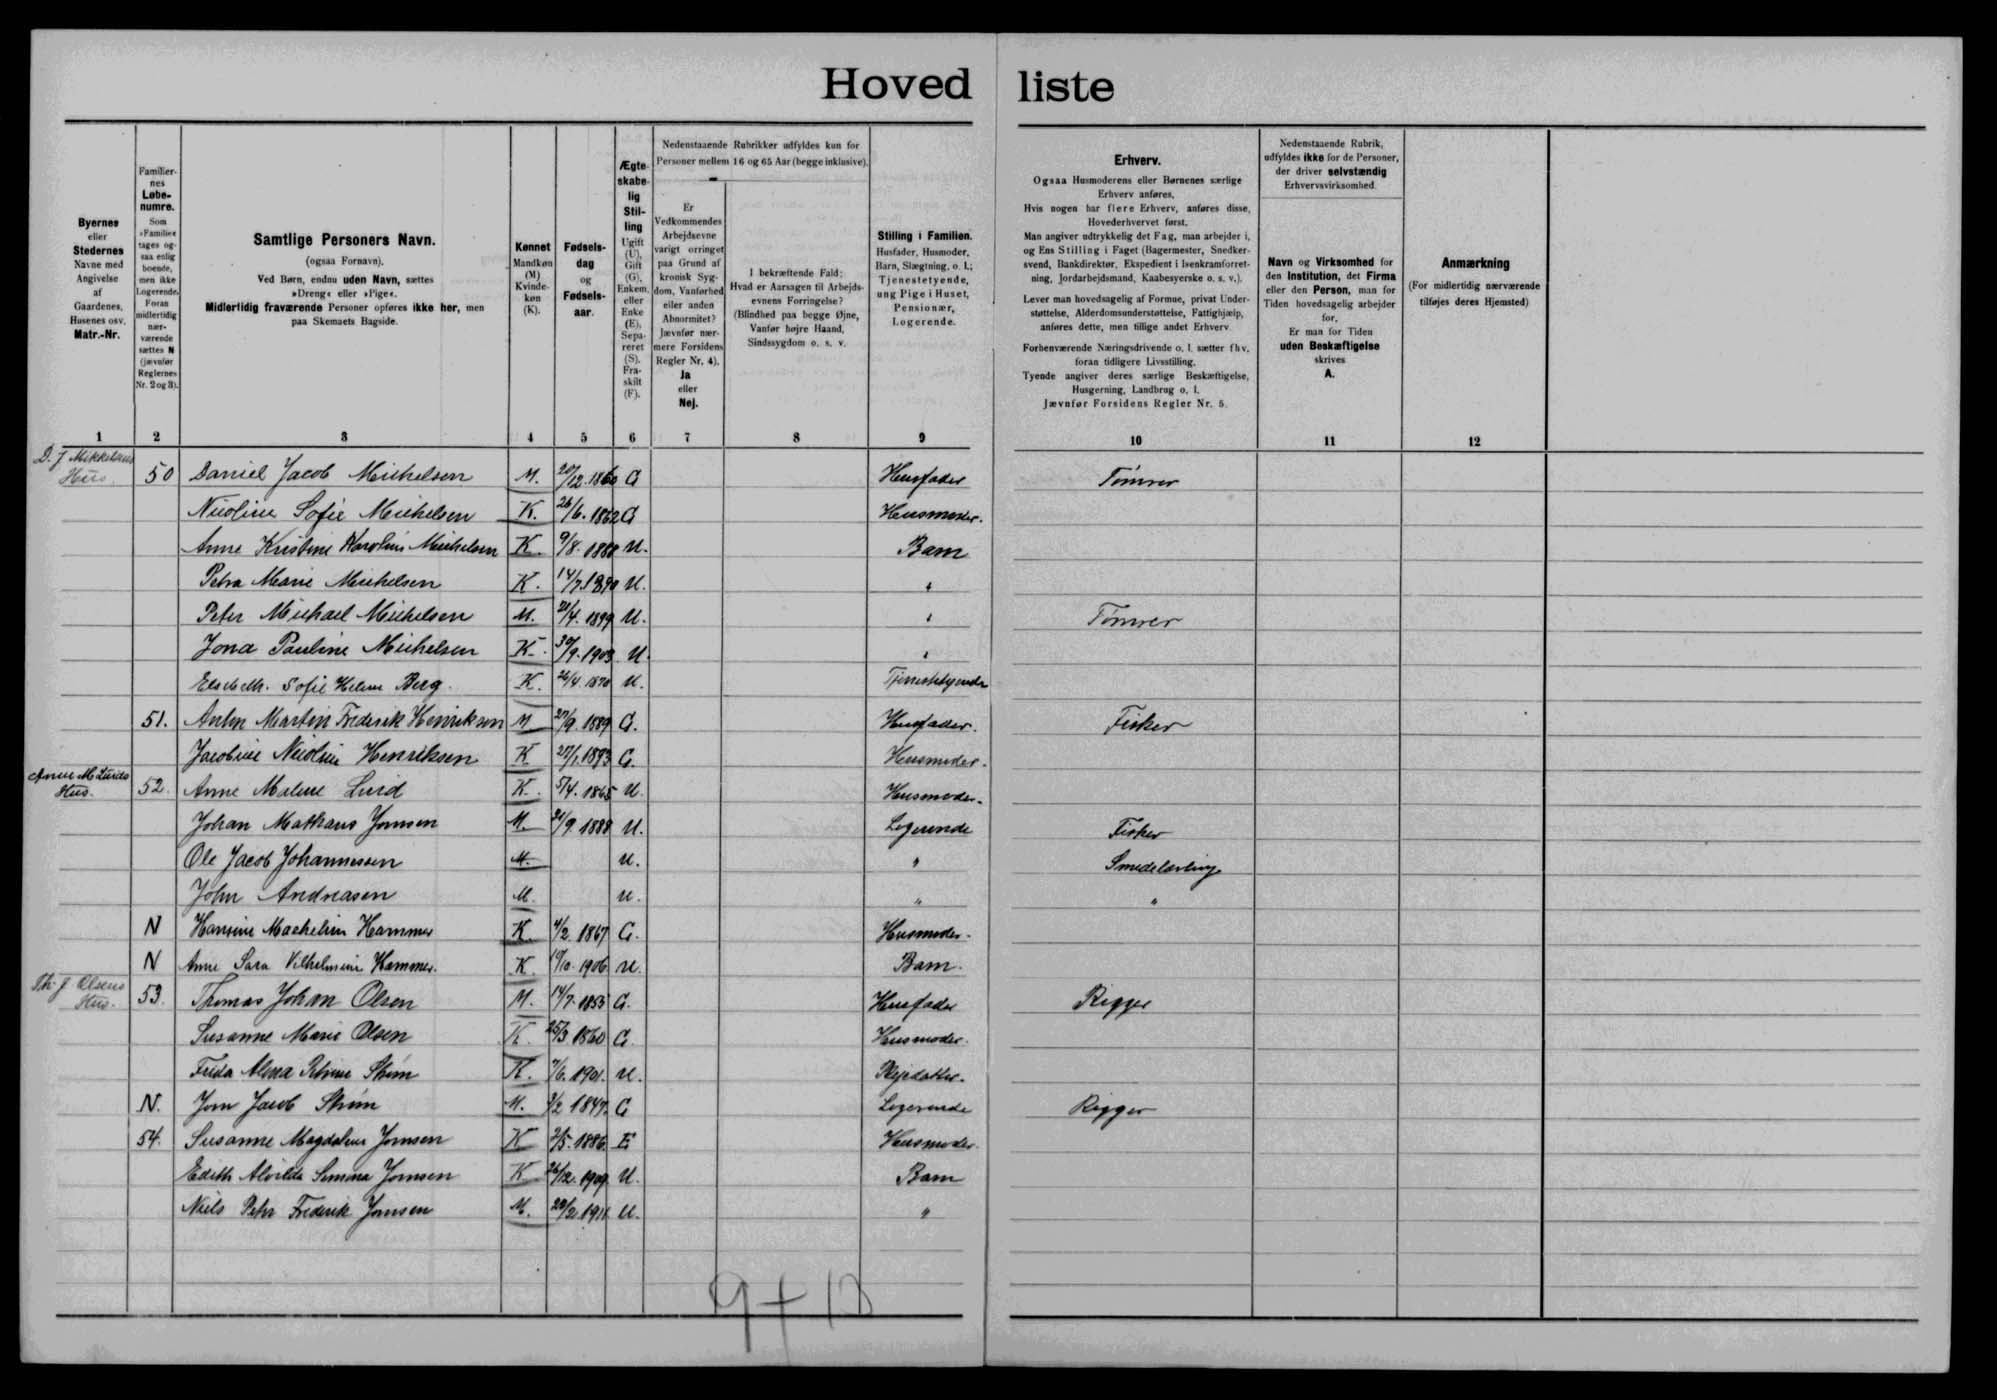 Hoved liste
Byernes
eller
Stedernes
Navne med
Angivelse
af
Gaardenes,
Husenes osv.
Matr.-Nr.
Familier-
nes
Løbe-
numre.
Som
»Familie«
tages og-
saa enlig
boende,
men ikke
Logerende.
Foran
midlertidig
nær-
værende
sættes N
(jævnfør
Reglernes
Nr. 2 og 3).
Samtlige Personers Navn.
(ogsaa Fornavn).
Ved Børn, endnu uden Navn, sættes
»Dreng« eller »Pige«.
Midlertidig fraværende Personer opføres ikke her, men
paa Skemaets Bagside.
Kønnet
Mandkøn
(M)
Kvinde-
køn
(K).
Fødsels-
dag
og
Fødsels-
aar.
Ægte-
skabe-
lig
Stil-
ling
Ugift
(U),
Gift
(G),
Enkem.
eller
Enke
(E),
Sepa-
reret
(S).
Fra-
skilt
(F).
Nedenstaaende Rubrikker udfyldes kun for
Personer mellem 16 og 65 Aar (begge inklusive).
Er
Vedkommendes
Arbejdsevne
varigt forringet
paa Grund af
kronisk Syg-
dom, Vanførhed
eller anden
Abnormitet?
Jævnfør nær-
mere Forsidens
Regler Nr. 4).
Ja
eller
Nej.
I bekræftende Fald:
Hvad er Aarsagen til Arbejds-
evnens Forringelse?
(Blindhed paa begge Øjne,
Vanfør højre Haand,
Sindssygdom o. s. v.
Stilling i Familien.
Husfader, Husmoder,
Barn, Slægtning, o. l.;
Tjenestetyende,
ung Pige i Huset,
Pensionær,
Logerende.
Erhverv.
Ogsaa Husmoderens eller Børnenes særlige
Erhverv anføres.
Hvis nogen har flere Erhverv, anføres disse,
Hovederhvervet først.
Man angiver udtrykkelig det Fag, man arbejder i,
og Ens Stilling i Faget (Bagermester, Snedker-
svend, Bankdirektør, Ekspedient i Isenkramforret-
ning, Jordarbejdsmand, Kaabesyerske o. s. v.).
Lever man hovedsagelig af Formue, privat Under-
støttelse, Alderdomsunderstøttelse, Fattighjælp,
anføres dette, men tillige andet Erhverv.
Forhenværende Næringsdrivende o. l. sætter fhv.
foran tidligere Livsstilling.
Tyende angiver deres særlige Beskæftigelse,
Husgerning, Landbrug o. l.
Jævnfør Forsidens Regler Nr. 5.
Nedenstaaende Rubrik,
udfyldes ikke for de Personer,
der driver selvstændig
Erhvervsvirksomhed.
Navn og Virksomhed for
den Institution, det Firma
eller den Person, man for
Tiden hovedsagelig arbejder
for.
Er man for Tiden
uden Beskæftigelse
skrives
A.
Anmærkning
(For midlertidig nærværende
tilføjes deres Hjemsted)
1 2 3 4 5 6 7 8 9 10 11 12
D. J Mikkelsens
Hus. 50 Daniel Jacob Michelsen M. 20/12.1860 G Husfader Tømrer
Nicoline Sofie Michelsen K. 26/6.1862 G Husmoder.
Anne Kristine Karoline Michelsen K. 9/8.1888 U. Barn
Petra Marie Michelsen K. 14/7.1890 U. "
Peter Michael Michelsen M. 21/4.1899 U. " Tømrer
Jona Pauline Michelsen K. 30/9.1903 U. "
Elsebeth. Sofie Helene Berg. K. 26/4.1870 U. Tjenestetyende
51. Anton Martin Frederik Henriksen M 27/9.1889 G. Husfader. Fisker
Jacobine Nicoline Henriksen K 27/1.1893 G. Husmoder.
Anne M Lunds
Hus. 52. Anne Malene Lund K. 5/4.1865 U. Husmoder.
Johan Mathæus Joensen M. 21/9.1888 U. Logerende Fisker
Ole Jacob Johannessen M. U. " Smedelærling
John Andreasen M. U. " "
N Hansine Mashelin Hammer K. 4/2 1867 G. Husmoder.
N Anne Sara Vilhelmine Hammer. K. 10/10.1906 U. Barn.
Th. J Olsens
Hus. 53. Thomas Johan Olsen M. 14/7.1855 G. Husfader Rigger
Susanne Marie Olsen K. 25/3 1860 G. Husmoder.
Frida Alma Petrine Strøm K. 7/6.1901. U. Plejedatter.
N. Jon Jacob Strøm M. 3/2 1847 G Logerende Rigger
54. Susanne Magdalene Joensen K 2/5.1886 E Husmoder.
Edith Alvilda Simona Joensen K 26/12.1909 U. Barn
Niels Peter Frederik Joensen M. 22/2.1911 U. "
9 + 13